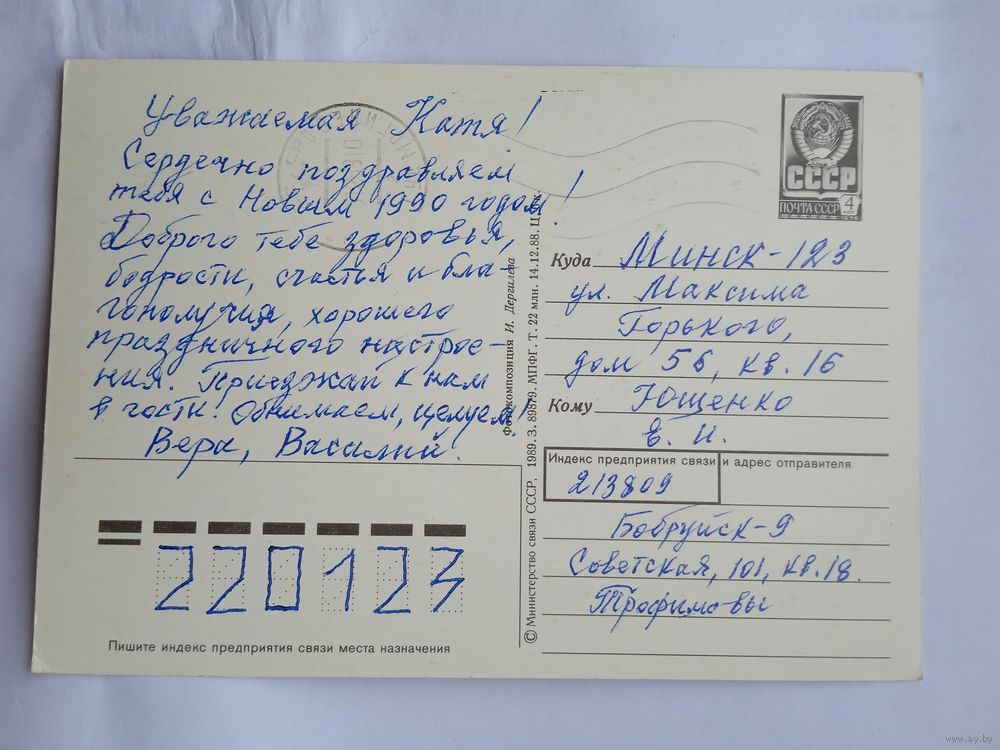 Уважаемая Катя!
Сердечно поздравляем
тебя с Новым 1990 годом!
Доброго тебе здоровья,
бодрости, счастья и бла-
гополучия, хорошего
праздничного настрое-
ния. Приезжай к нам
в гости. Обнимаем, целуем!
Вера, Василий.
220123
Пишите индекс предприятия связи места назначения
Фотокомпозиция И. Дергилева
© Министерство связи СССР, 1989. З. 89879. МПФГ. Т. 22 млн. 14.12.88. Ц
СССР
ПОЧТА СССР 4
1976
Куда Минск-123
ул. Максима
Горького,
дом 56, кв. 16
Кому Ющенко
Е. И.
Индекс предприятия связи и адрес отправителя
213809
Бобруйск-9
Советская, 101, кв. 18.
Трофимовы
www.ay.by